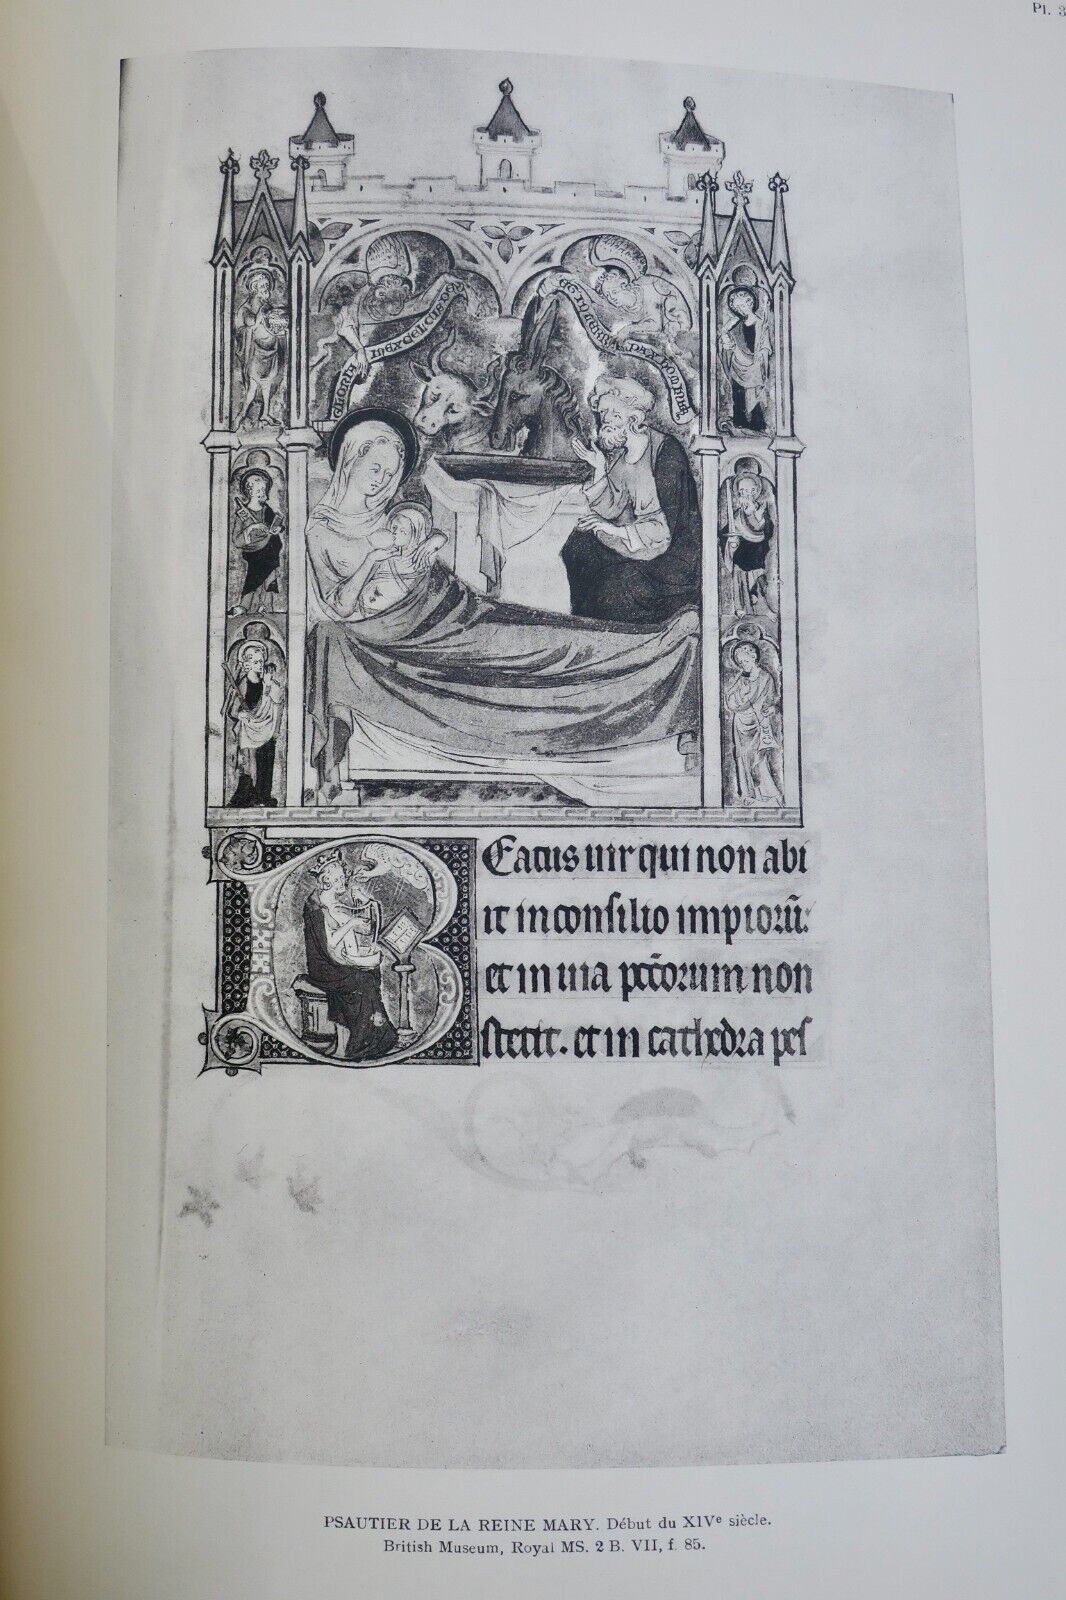 Pl. 3
GLORIA IN EXCELCIS DEO
ET IN TERRA PAX HOMINIB
Beatus uir qui non abi
it in consilio impiorũ:
et in uia pc̃torum non
stetit. et in cathedra pes
PSAUTIER DE LA REINE MARY. Début du XIVe siècle.
British Museum, Royal MS. 2 B. VII, f. 85.